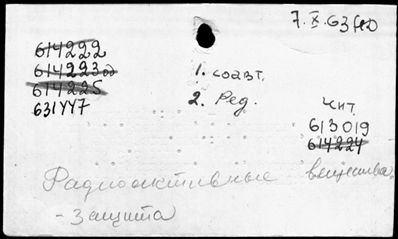 7.X.63
614222
614223
614225
631447
1. соавт.
2. Ред.
Чит.
613019
614224
Радиоактивные вещества
- Защита